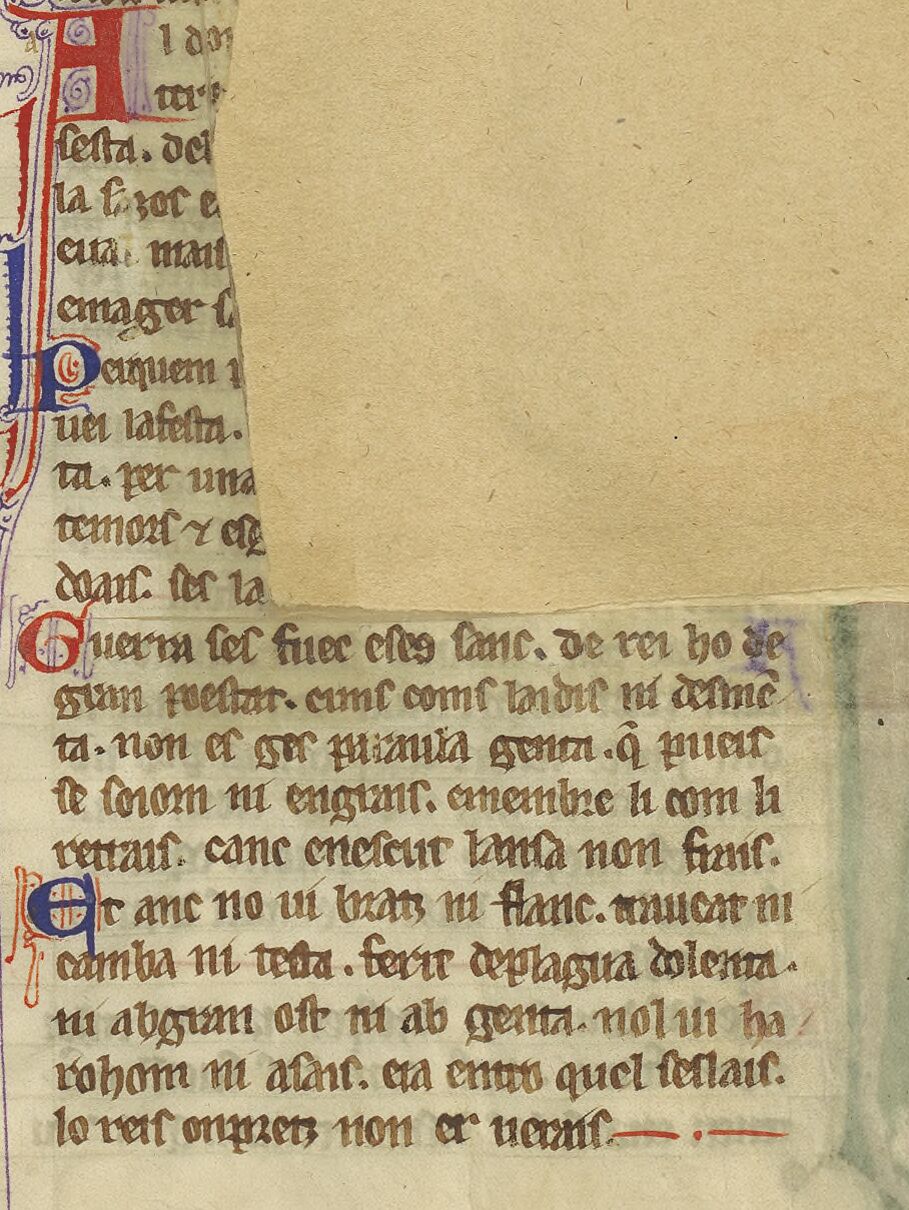 Al do
sesta. del
la sazos e
eua mais
emager s
Peiquem
uei lafesta.
ta. per una
temors ⁊ esg
doais. ses la
Guerra ses fuec eses sanc. de rei ho de
gran poestat. cuns coms laidis ni desmē
ta. non es ges paraula genta. q̃ pueis
se soiorn ni engrais. emembre li com li
retrais. canc enescut lansa non frais.
Et anc no ui bratz ni flanc. traucat ni
camba ni testa. ferit deplagua dolenta.
ni abgran ost ni ab genta. nol ui ha
rohom ni asais. eia entro quel seslais.
lo reis onpretz non er uerais.